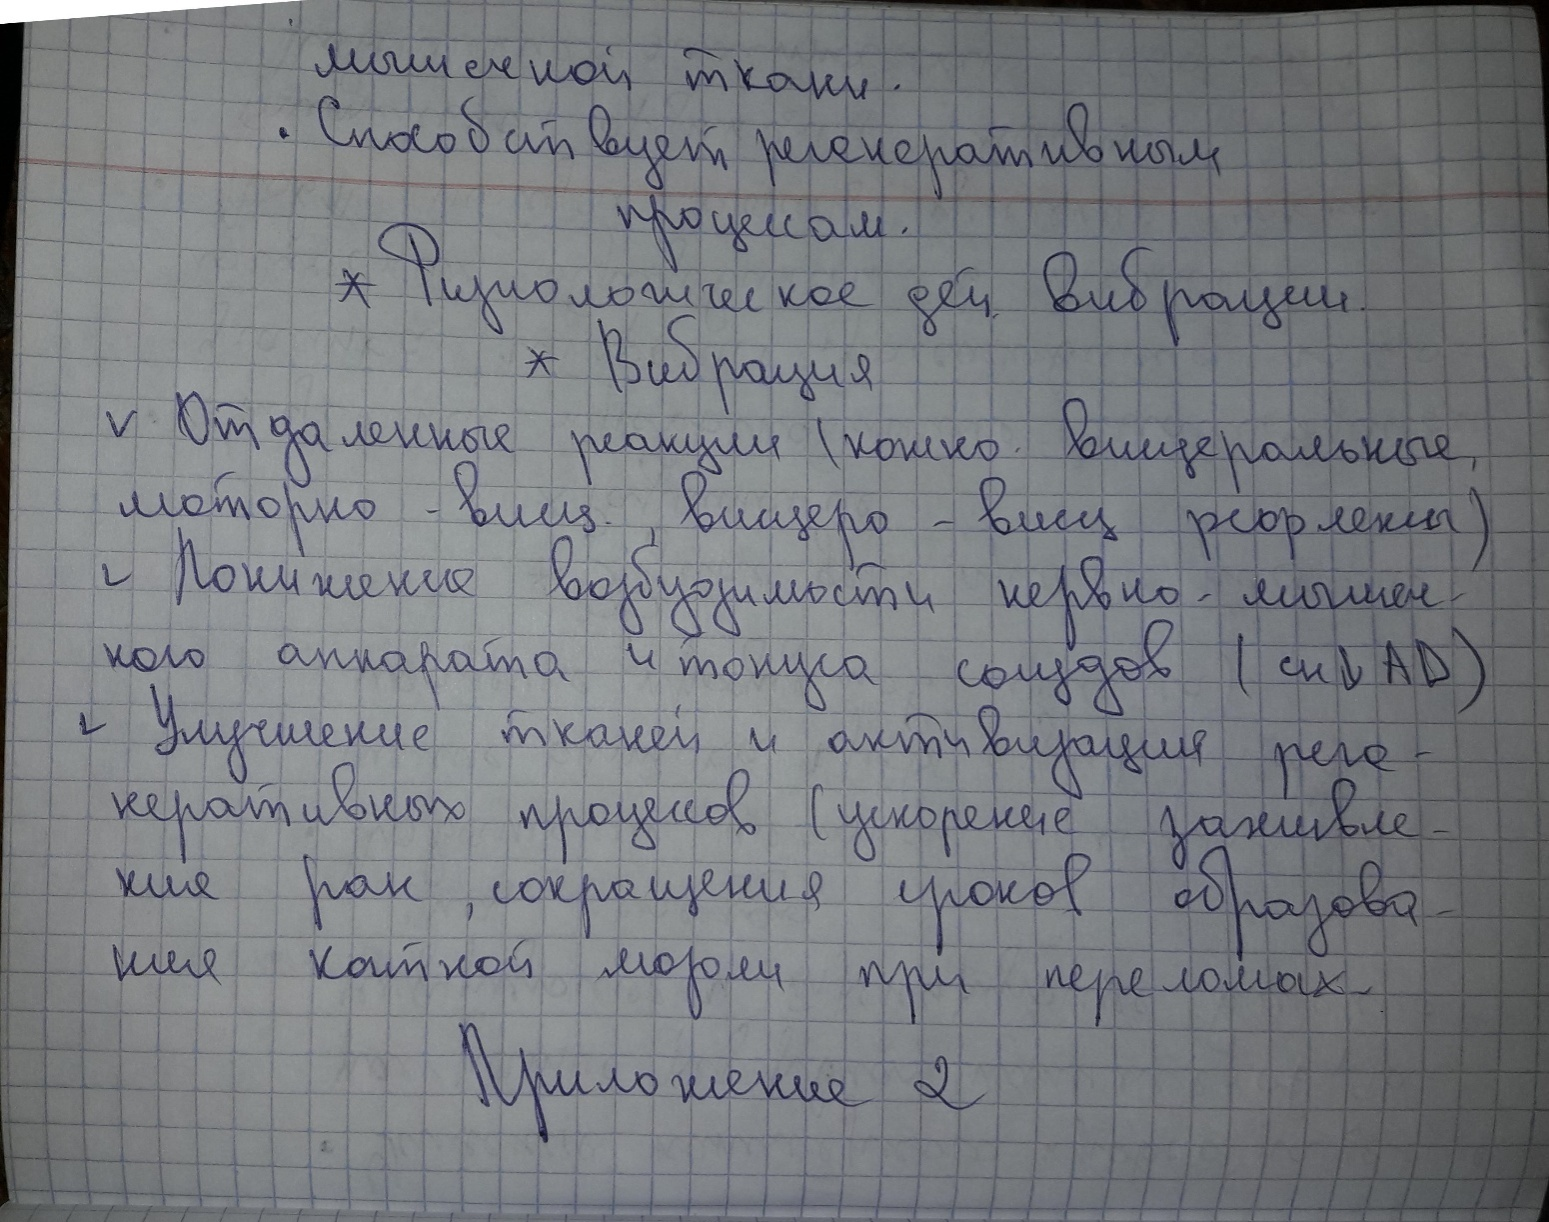 мышечной ткани.
• Способствует регенеративным
процессам.
* Физиологическое дей. вибрации.
* Вибрация
✓ Отдаленные реакции (кожно. висцеральные,
моторно - висц., висцеро - висц рефлексы)
✓ Понижение возбудимости нервно - мышеч-
ного аппарата и тонуса сосудов (сн ↓ АД)
✓ Улучшение тканей и активизация реге-
неративных процессов (ускорение заживле-
ния ран, сокращения сроков образова-
ния костной мозоли при переломах
Приложение 2